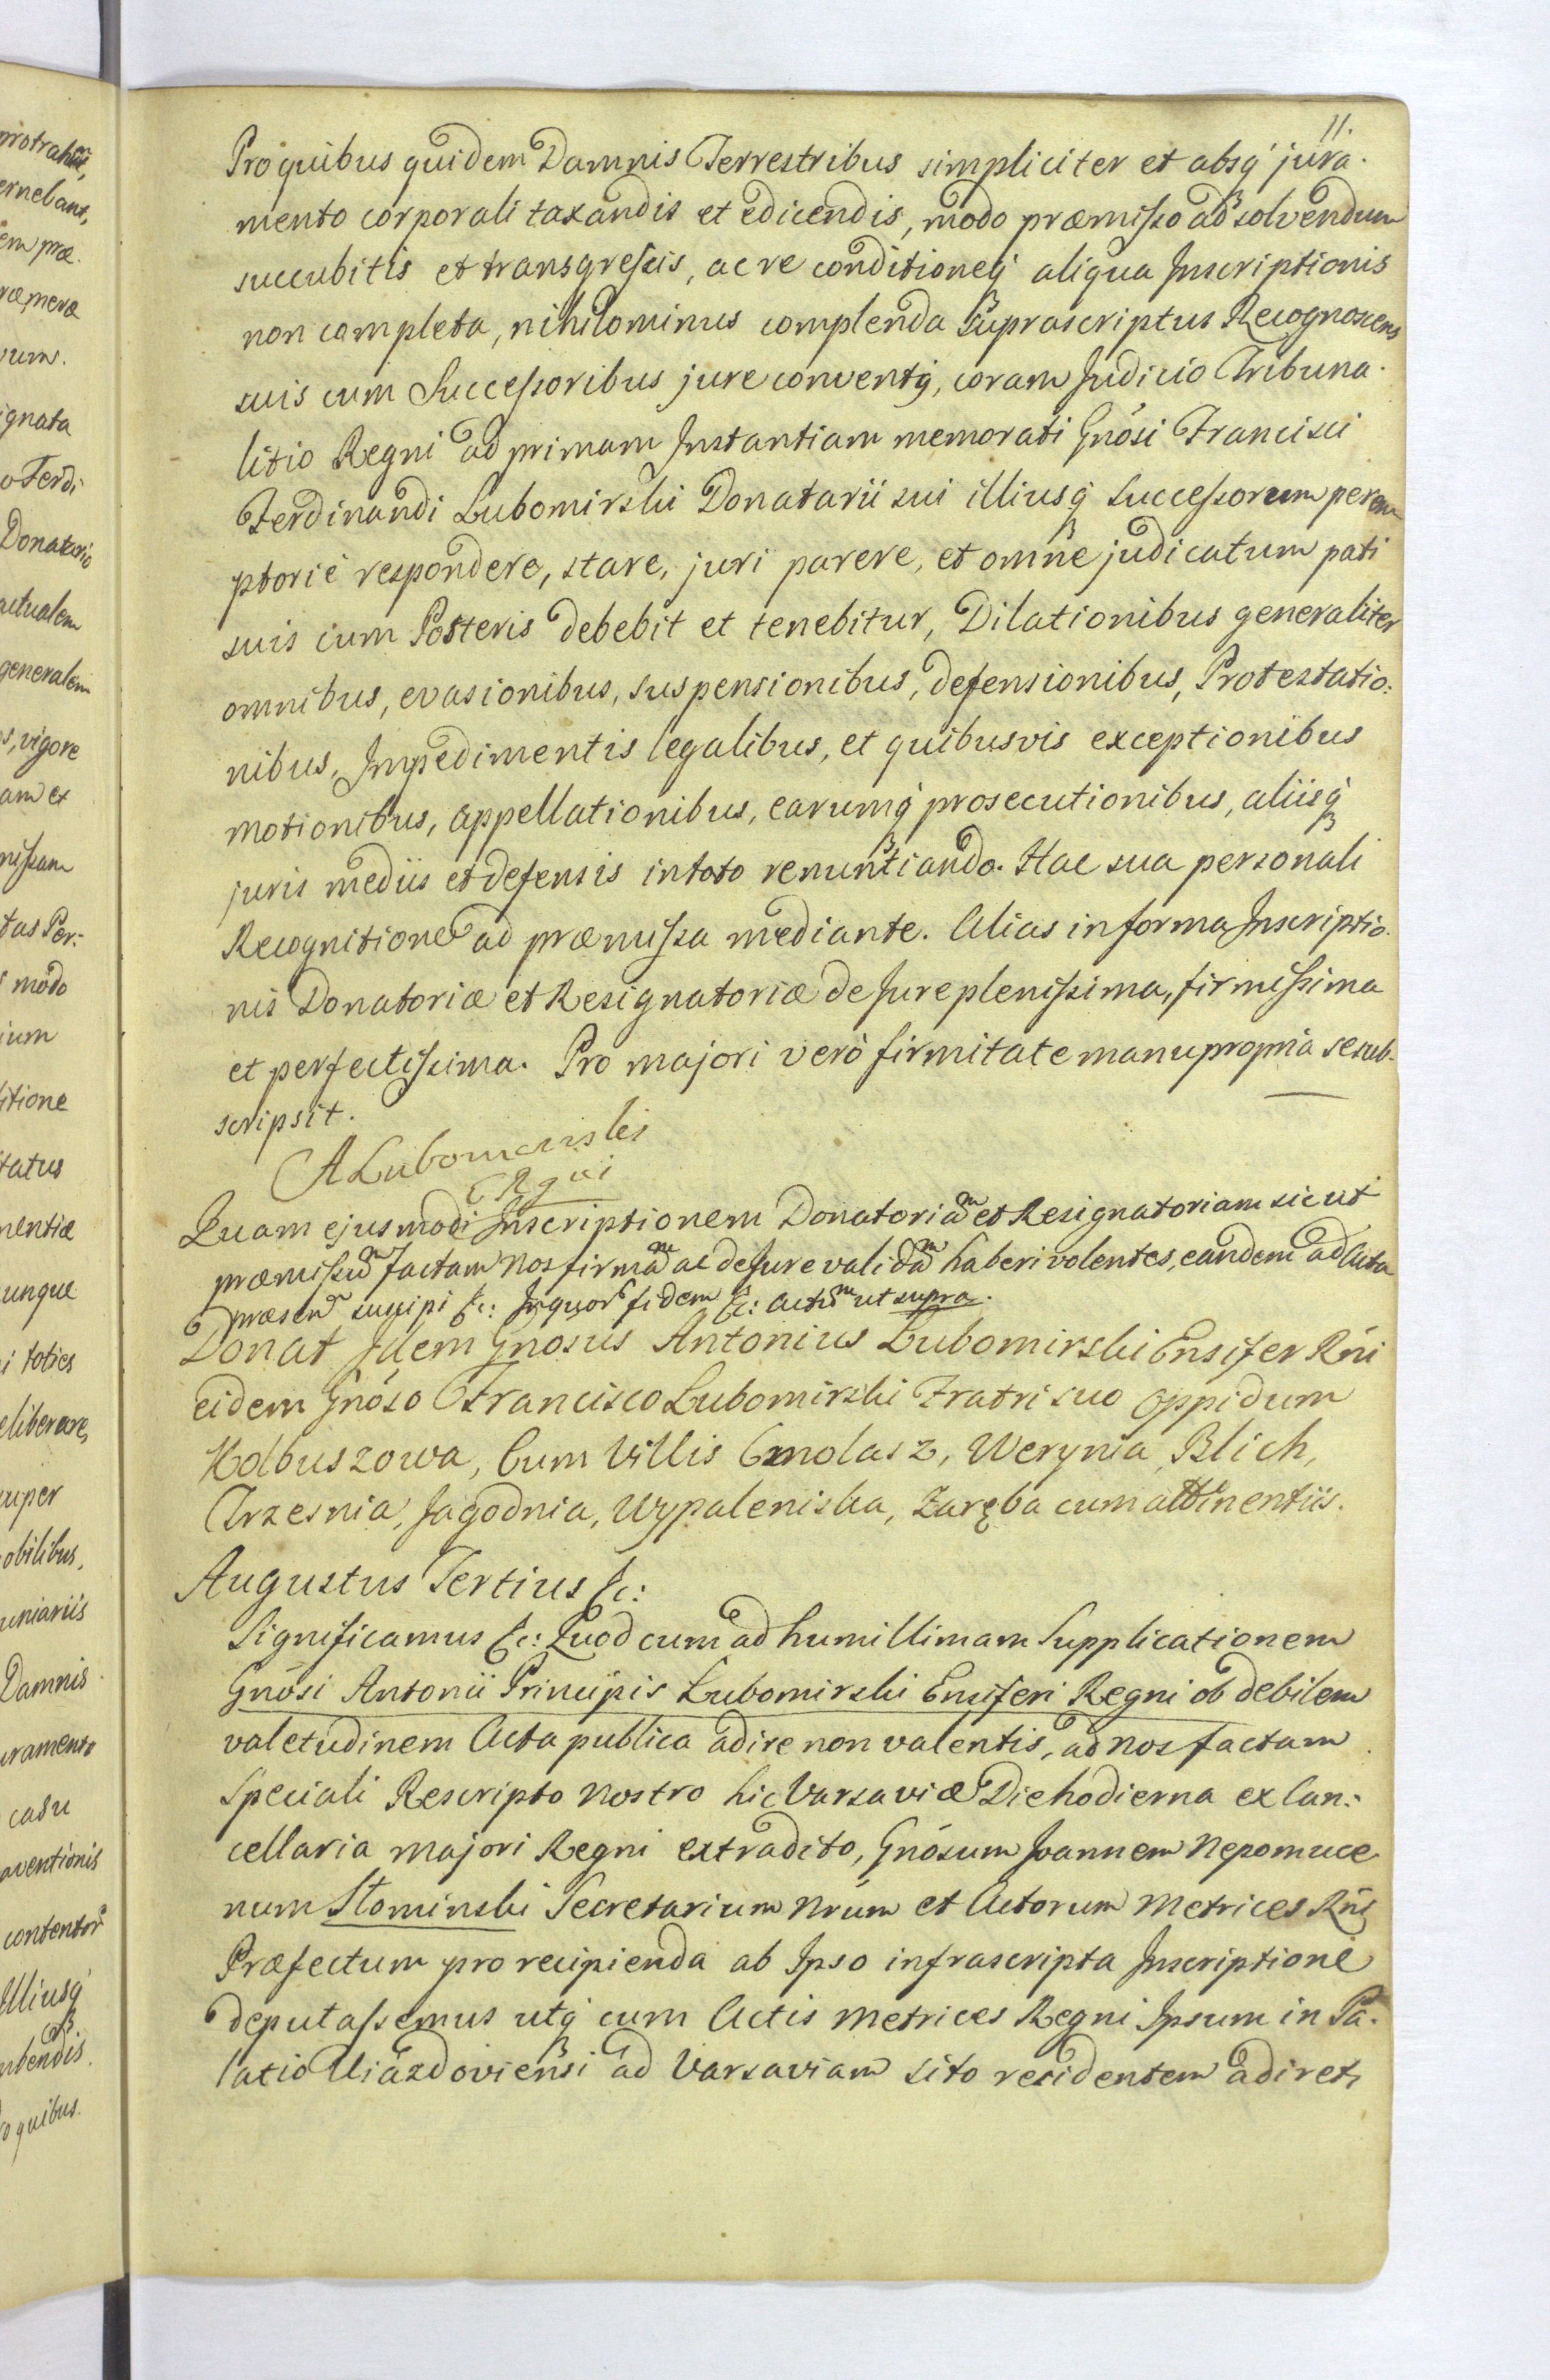 11.
Pro quibus quidem Damnis Terrestribus simpliciter et absq́ jura-
mento corporali taxandis et edicendis, modo præmisso ad solvendum
succubitis et transgressis, ac re conditioneq́ aliqua Inscriptionis
non completa, nihilominus complenda Suprascriptus Recognoscens
suis cum Successoribus jure conventq́, coram Judicio Tribuna-
litio Regni ad primam Instantiam memorati Gnósi Francisci
Ferdinandi Lubomirski Donatarii sui illiusq́ Successorum perem
ptorie respondere, stare, juri parere, et omñe judicatum pati
suis cum Posteris debebit et tenebitur, Dilationibus generaliter
omnibus, evasionibus, suspensionibus, defensionibus, Protestatio:
nibus, Impedimentis legalibus, et quibusvis exceptionibus
motionibus, appellationibus, earumq́ prosecutionibus, aliisq́
juris mediis et defensis in toto renuntiando. Hac sua personali
Recognitione ad præmissa mediante. Alias in forma Inscriptio-
nis Donatoriæ et Resignatoriæ de Jure plenissima, firmissima
et perfectissima. Pro majori verò firmitate manu propria se sub-
scripsit.
A Lubomirski
Quam ejusmodi Inscriptionem Donatoriam et Resignatoriam sicut
præmissum factam Nos firmam ac de Jure validam haberi volentes, eandem ad Acta
præsen suscipi &c: In quor fidem &c: Actum ut supra.
Donat Idem Gnosus Antonius Lubomirski Ensifer Rńi
eidem Gnóso Francisco Lubomirski Fratri suo Oppidum
Kolbuszowa, Cum Villis Cmolasz, Werynia, Blich,
Trzesnia, Jagodnia, Wypaleniska, Zaręba cum attinentiis.
Augustus Tertius &c:
Significamus &c: Quod cum ad humillimam Supplicationem
Gnósi Antonii Principis Lubomirski Ensiferi Regni ob debilem
valetudinem Acta publica adire non valentis, ad Nos factam
Speciali Rescripto Nostro hic Varsaviæ Die hodierna ex Can-
cellaria Majori Regni extradito, Gnósum Joannem Nepomuce
num Słominski Secretarium Nrúm et Actorum Metrices Rńi
Præfectum pro recipienda ab Ipso infrascripta Inscriptione
deputassemus utq́ cum Actis Metrices Regni Ipsum in Pa-
latio Uiazdoviensi ad Varsaviam sito residentem adiret,